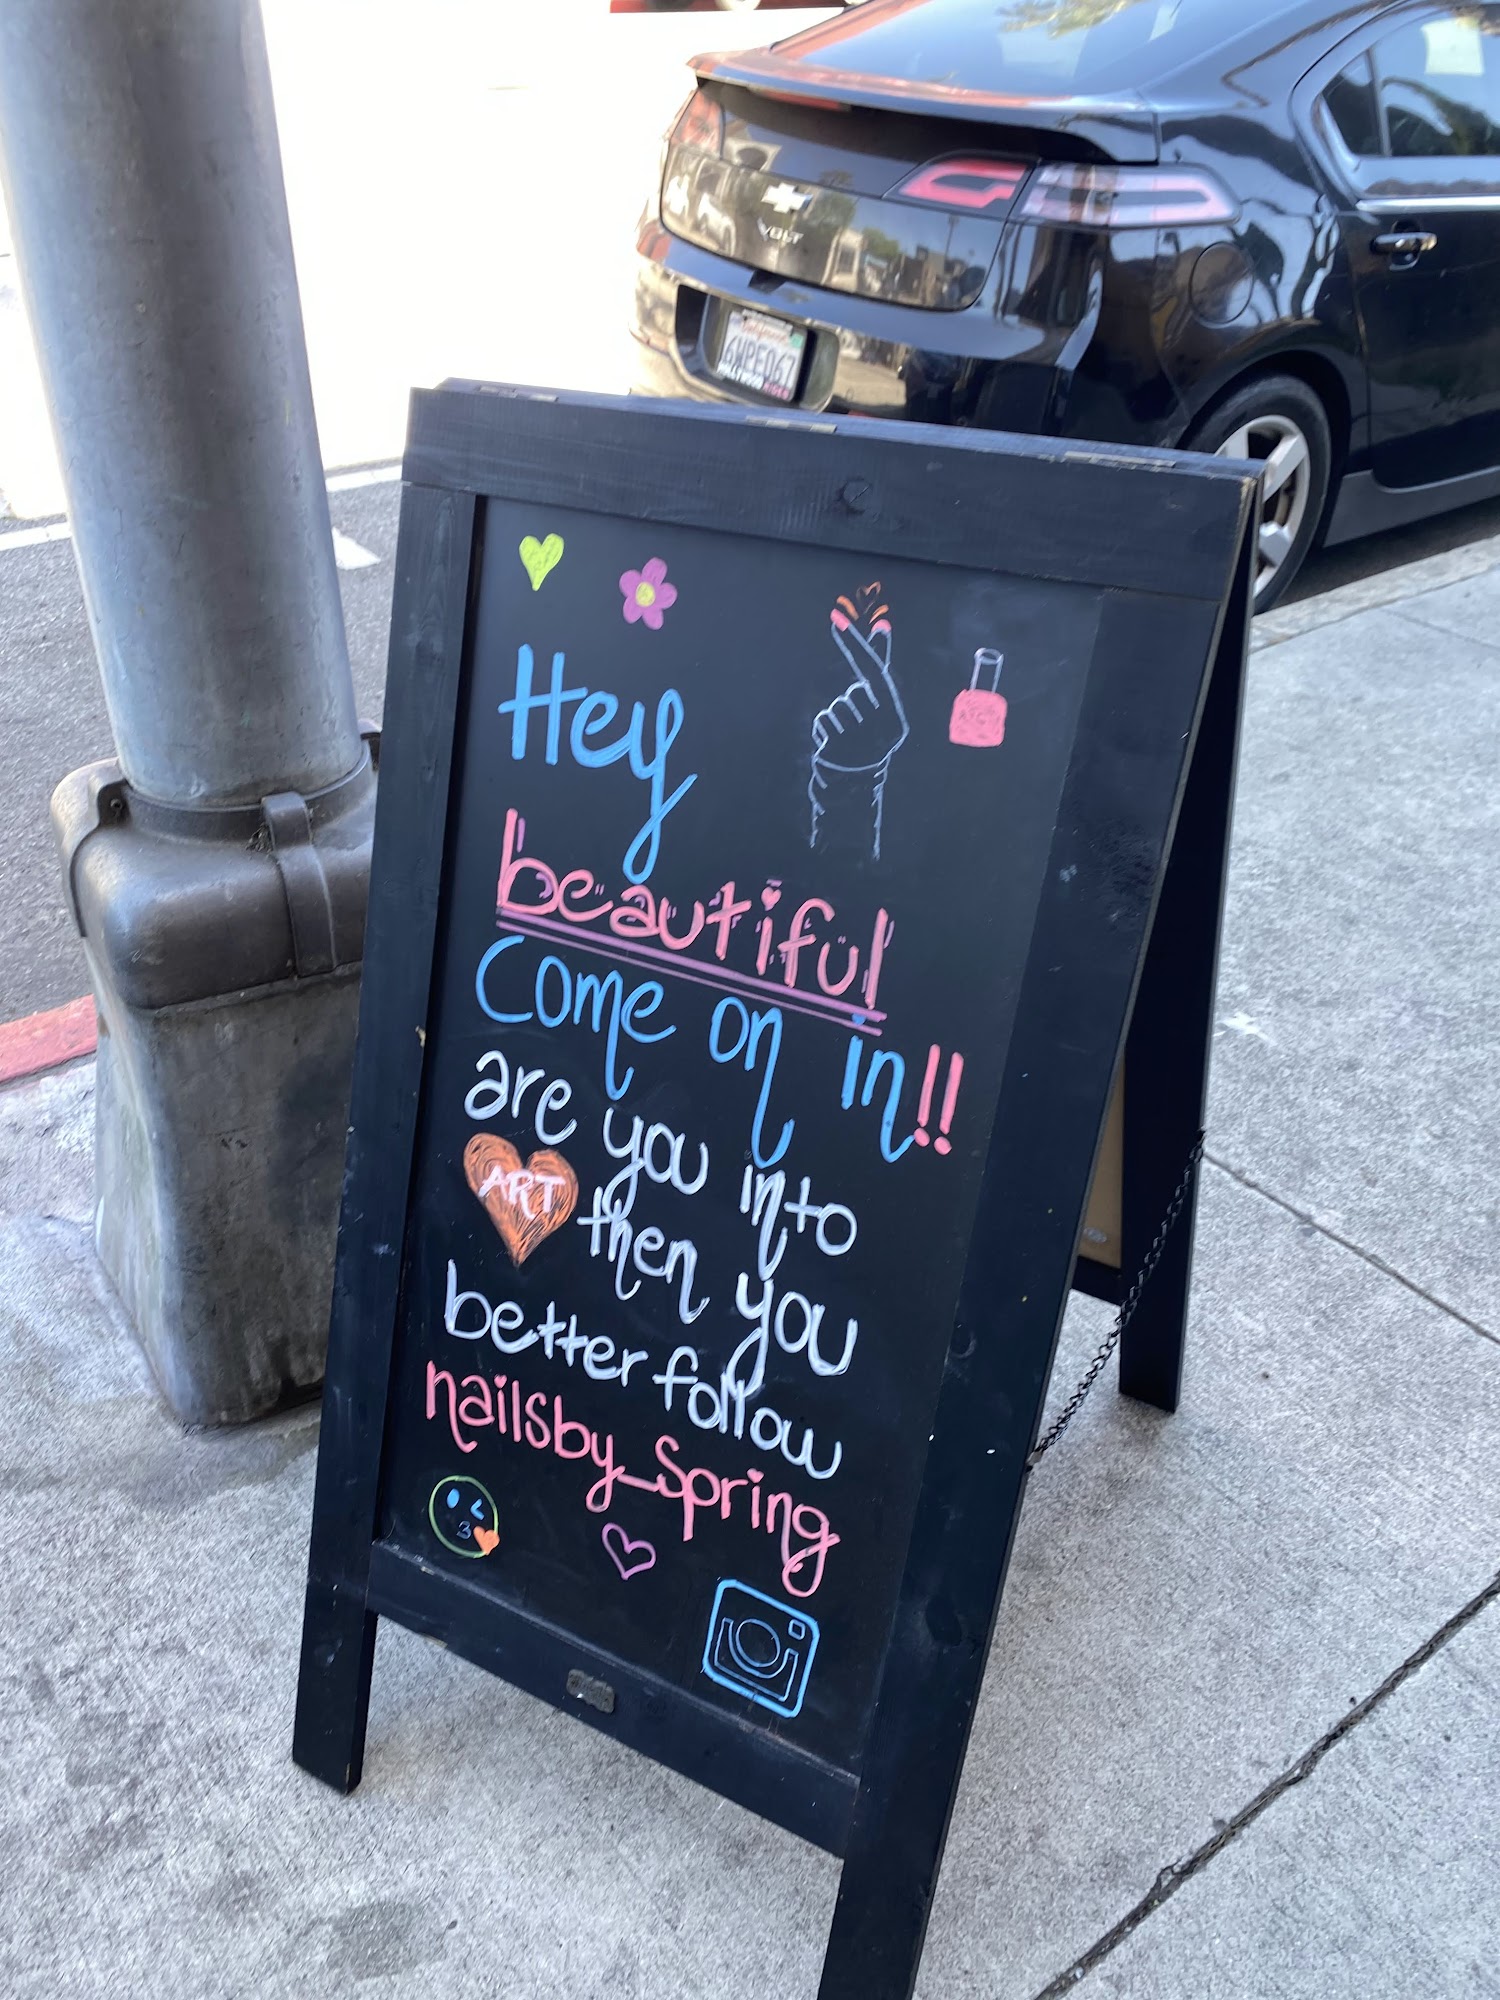 VOLT
6WPE067
Hey
beautiful
Come on in!!
are you into
ART then you
better follow
nailsby_Spring